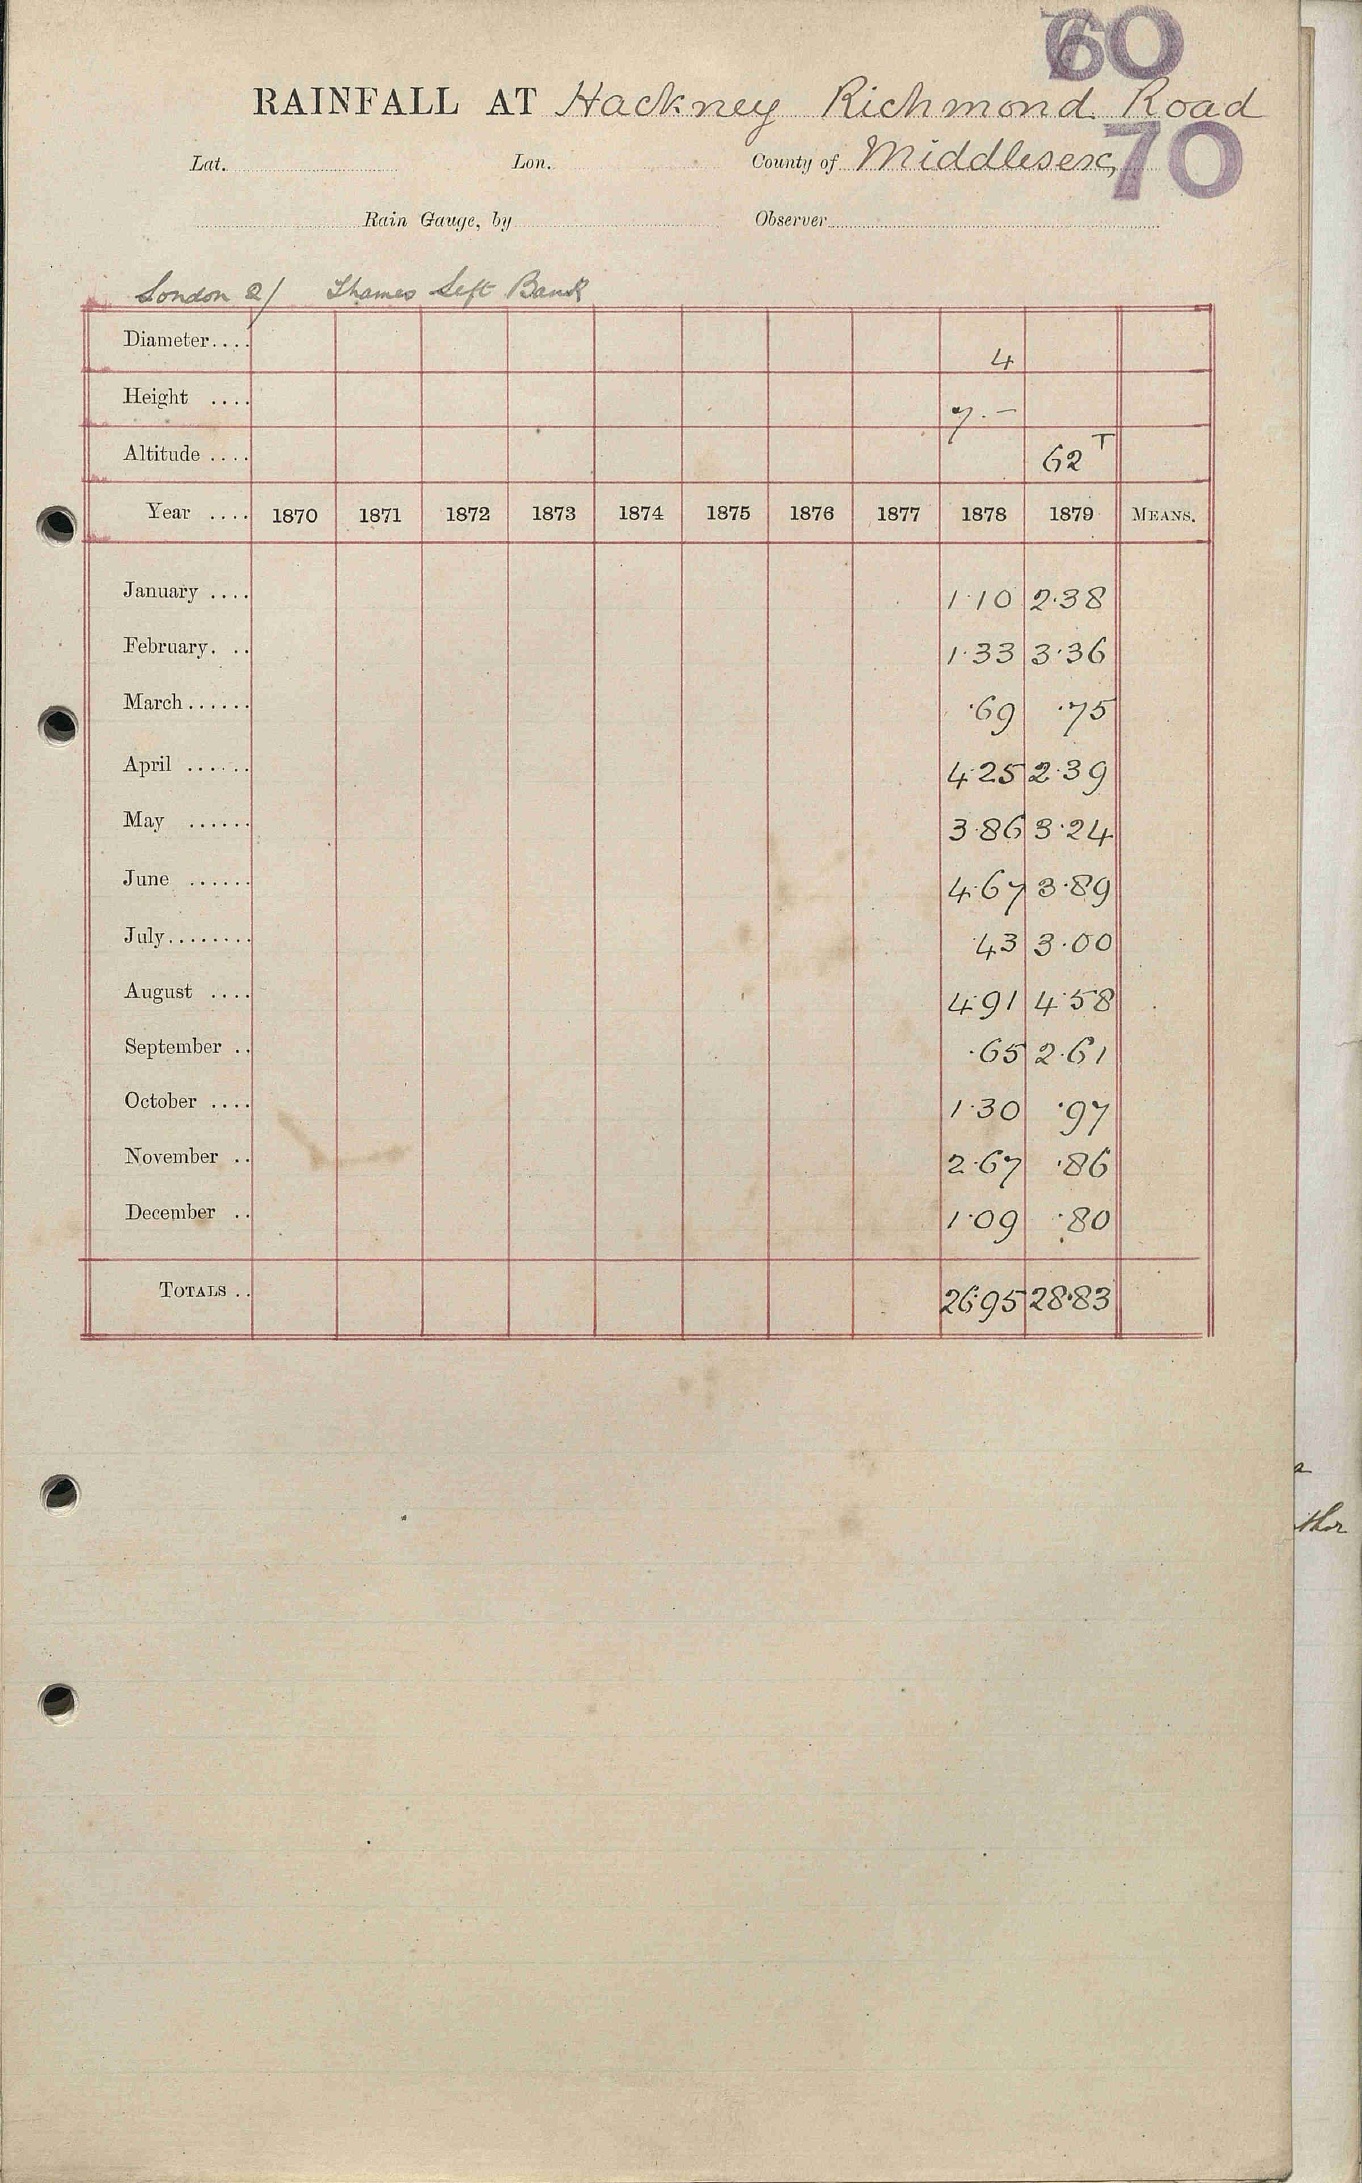 60
RAINFALL AT Hackney Richmond Road
70
Lat. Lon. County of Middlesex
Rain Gauge, by Observer
London 2/ Thames Left Bank
Diameter.... 4
Height .... 7.–
Altitude .... 62 T
Year .... 1870 1871 1872 1873 1874 1875 1876 1877 1878 1879 MEANS.
January .... 1·10 2·38
February. .. 1·33 3·36
March...... ·69 ·75
April ...... 4·25 2·39
May ...... 3·86 3·24
June ...... 4·67 3·89
July........ 43 3·00
August .... 4·91 4·58
September .. ·65 2·61
October .... 1·30 ·97
November .. 2·67 ·86
December .. 1·09 ·80
TOTALS .. 26·95 28·83